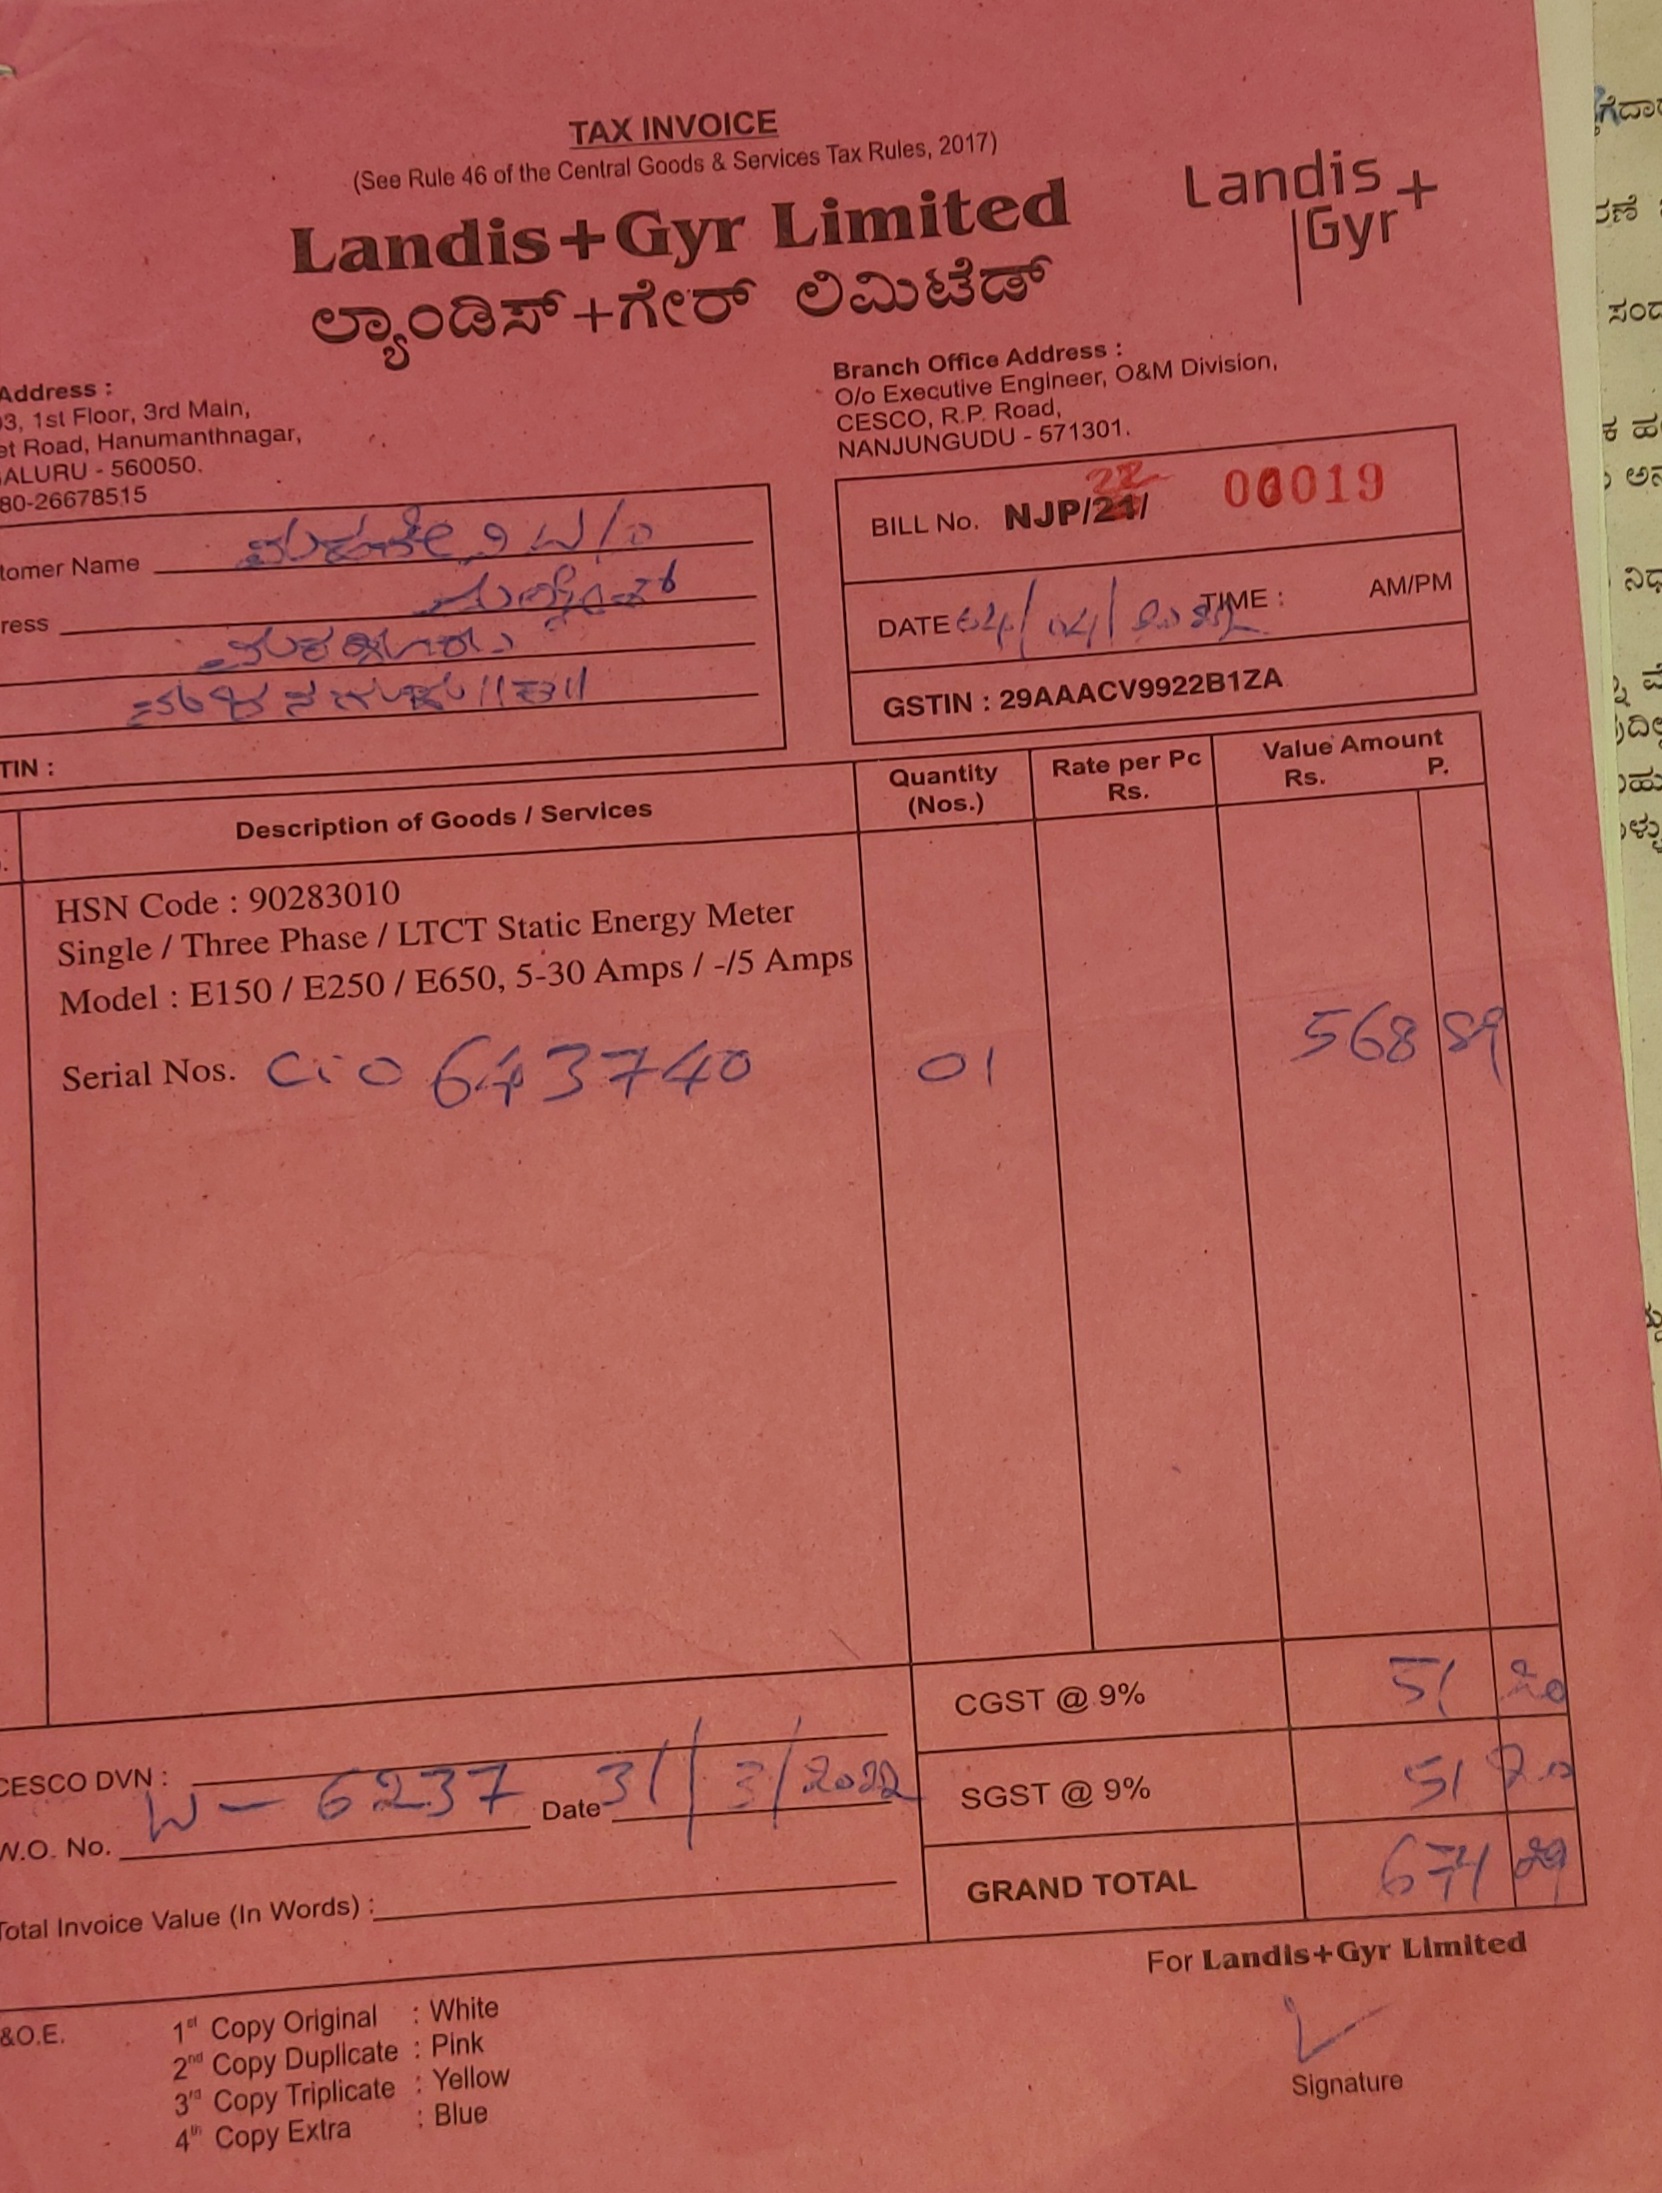 TAX INVOICE
(See Rule 46 of the Central Goods & Services Tax Rules, 2017)
Landis+Gyr Limited
ಲ್ಯಾಂಡಿಸ್+ಗೇರ್ ಲಿಮಿಟೆಡ್
Landis+
Gyr
Address :
03, 1st Floor, 3rd Main,
et Road, Hanumanthnagar,
ALURU - 560050.
80-26678515
Branch Office Address :
O/o Executive Engineer, O&M Division,
CESCO, R.P. Road,
NANJUNGUDU - 571301.
tomer Name
ress
TIN :
BILL No. NJP/21/ 22 00019
DATE 04/04/2022 TIME : AM/PM
GSTIN : 29AAACV9922B1ZA
Description of Goods / Services
Quantity
(Nos.)
Rate per Pc
Rs.
Value Amount
Rs. P.
HSN Code : 90283010
Single / Three Phase / LTCT Static Energy Meter
Model : E150 / E250 / E650, 5-30 Amps / -/5 Amps
Serial Nos. Cio 643740 01 568 89
CGST @ 9% 51 20
SGST @ 9% 51 20
GRAND TOTAL 671 29
CESCO DVN :
W.O. No. W - 6237 Date 31/3/2022
Total Invoice Value (In Words) :
For Landis+Gyr Limited
Signature
&O.E.
1st Copy Original : White
2nd Copy Duplicate : Pink
3rd Copy Triplicate : Yellow
4th Copy Extra : Blue